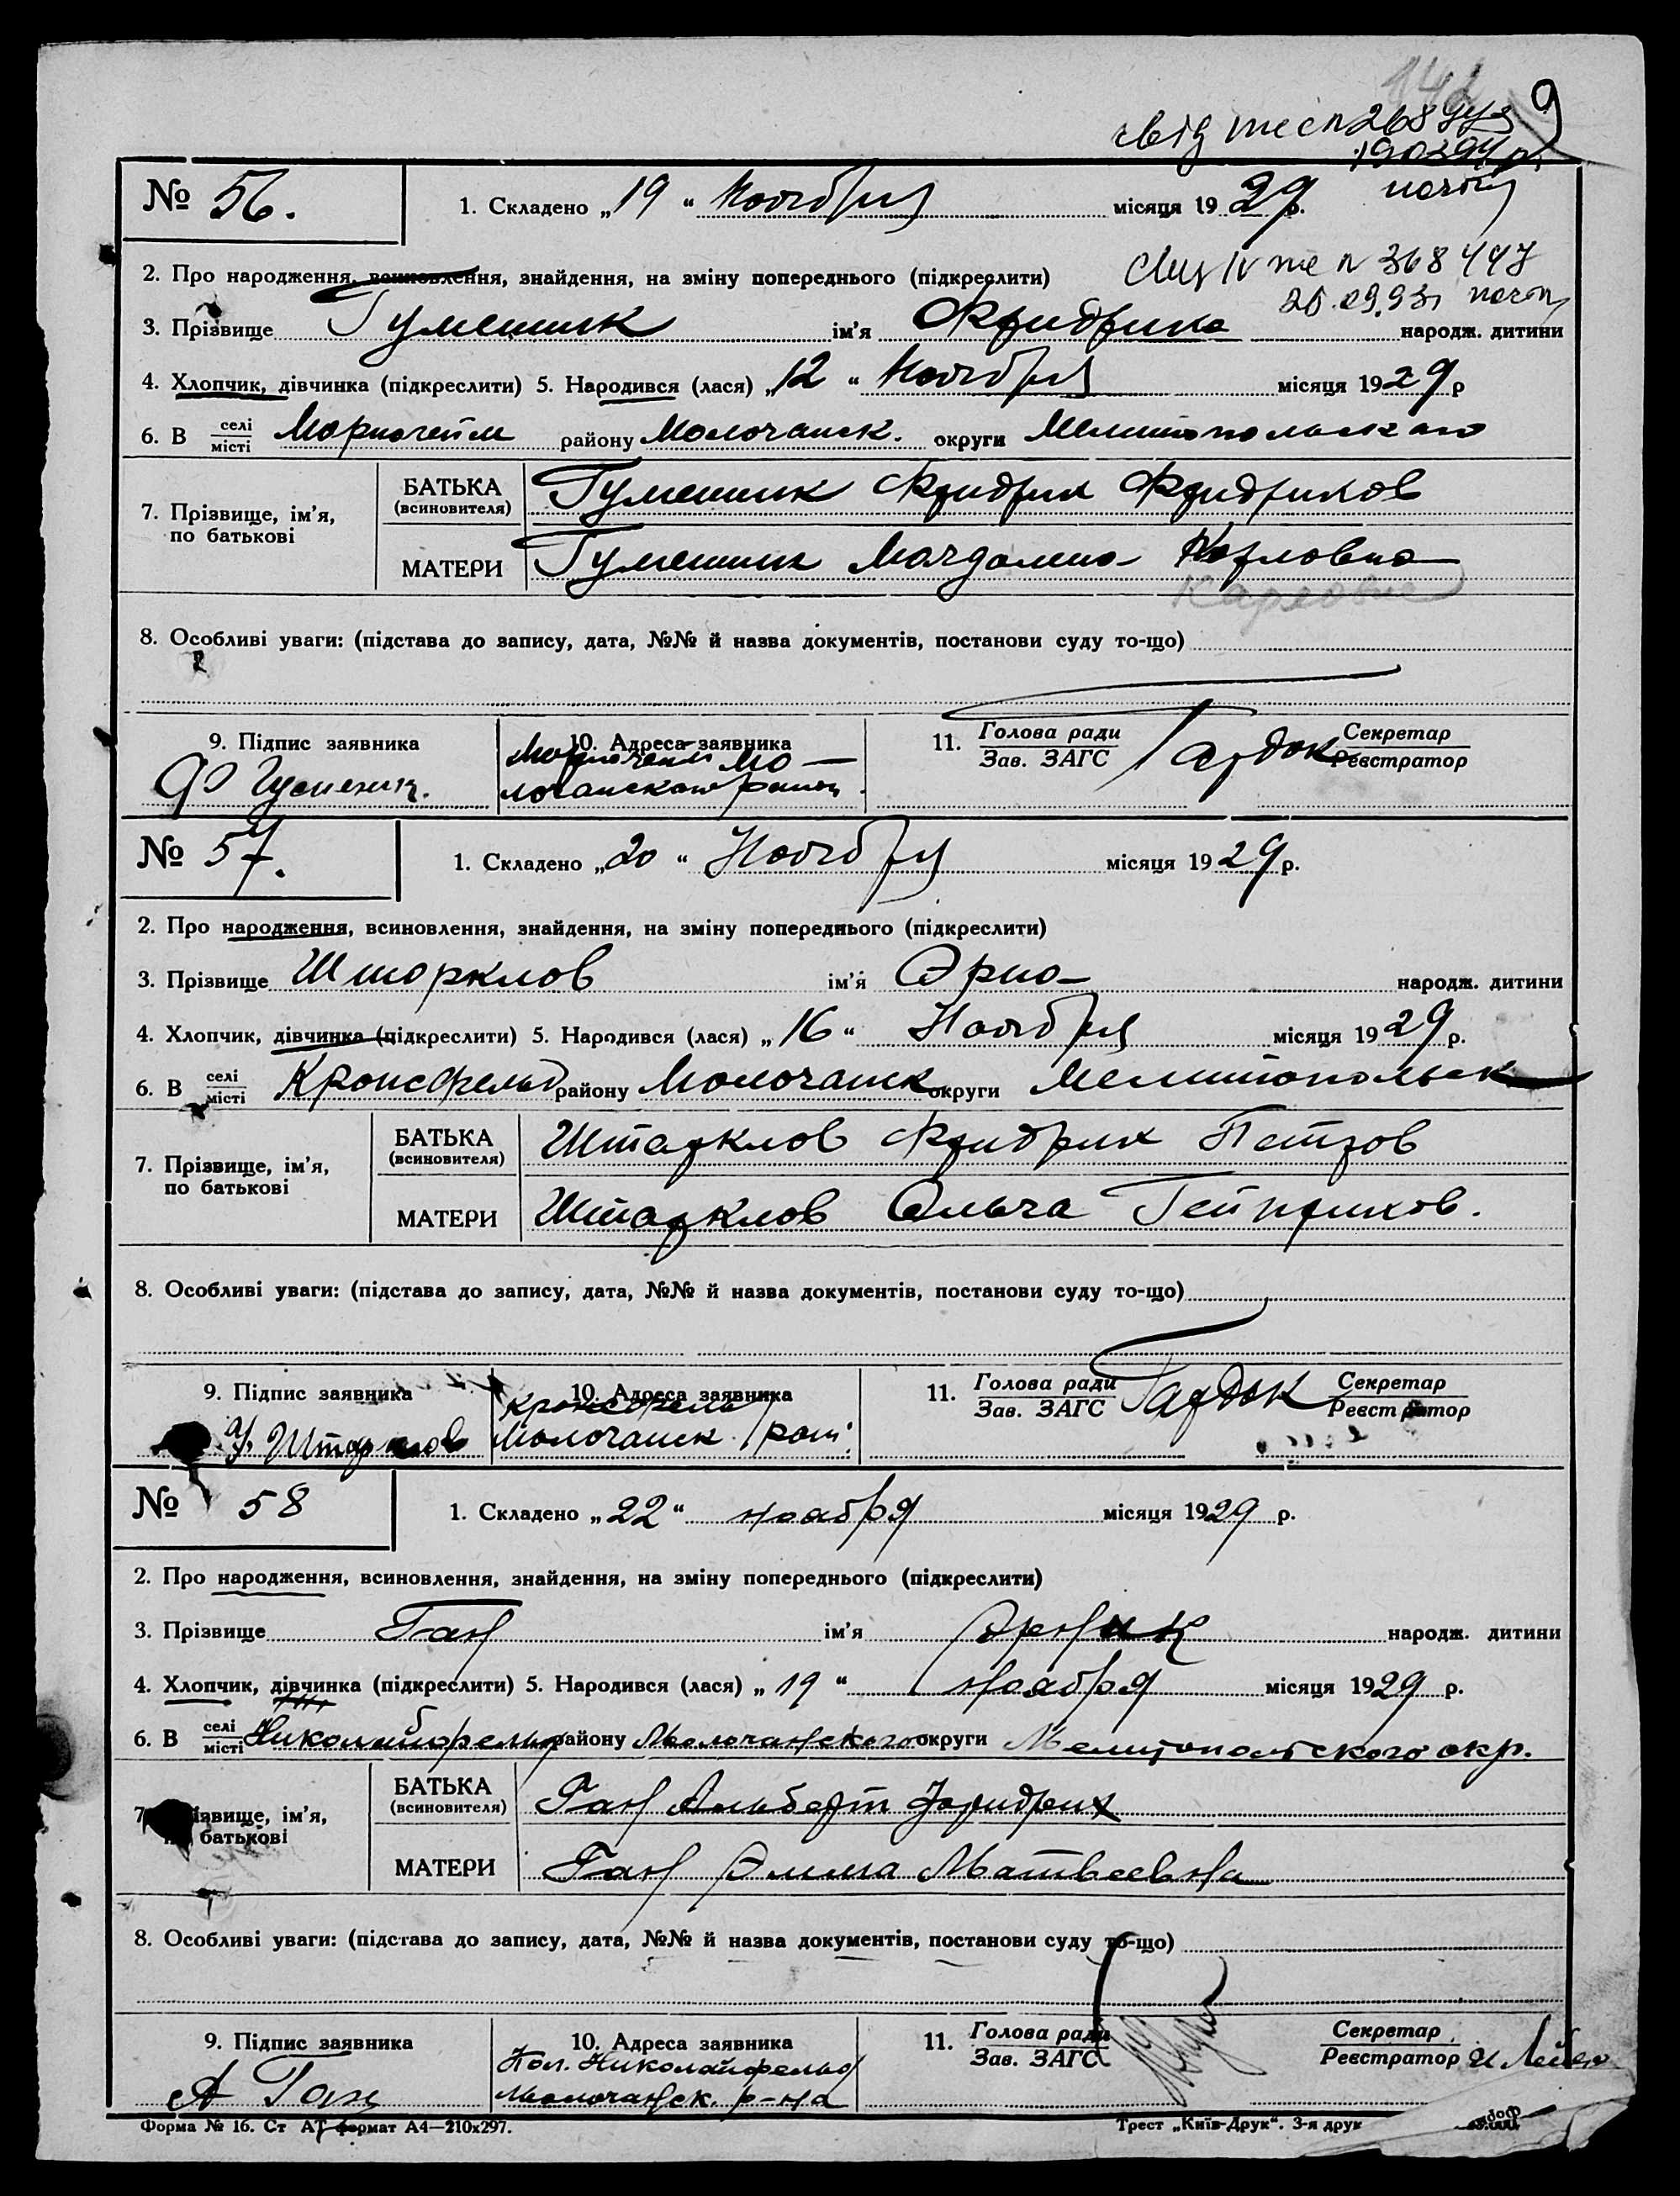 9
№ 56. 1. Складено „19" Ноября місяця 1929 р.
2. Про народження, всиновлення, знайдення, на зміну попереднього (підкреслити)
3. Прізвище Гуменник ім'я Фридрих народж. дитини
4. Хлопчик, дівчинка (підкреслити) 5. Народився (лася) „12" Ноября місяця 1929 р
6. В селі місті району Молочанск. округи Мелитопольского
7. Прізвище, ім'я, по батькові
БАТЬКА (всиновителя) Фридрих Фридрихов
МАТЕРИ Магдалина Карловна
Карловна
8. Особливі уваги: (підстава до запису, дата, №№ й назва документів, постанови суду то-що)
9. Підпис заявника 10. Адреса заявника 11. Голова ради Зав. ЗАГС Секретар Реєстратор
Мо-
лочанского района
№ 57. 1. Складено „20" Ноября місяця 1929 р.
2. Про народження, всиновлення, знайдення, на зміну попереднього (підкреслити)
3. Прізвище Штарклов ім'я Эрна народж. дитини
4. Хлопчик, дівчинка (підкреслити) 5. Народився (лася) „16" Ноября місяця 1929 р.
6. В селі місті Кронсфельд району Молочанск округи Мелитопольск
7. Прізвище, ім'я, по батькові
БАТЬКА (всиновителя) Штарклов Фридрих Петров
МАТЕРИ Штарклов Ольга Гейнрихов.
8. Особливі уваги: (підстава до запису, дата, №№ й назва документів, постанови суду то-що)
9. Підпис заявника 10. Адреса заявника 11. Голова ради Зав. ЗАГС Секретар Реєстратор
Кронсфельд
Штарклов Молочанск рай.
№ 58 1. Складено „22" ноября місяця 1929 р.
2. Про народження, всиновлення, знайдення, на зміну попереднього (підкреслити)
3. Прізвище Ган ім'я народж. дитини
4. Хлопчик, дівчинка (підкреслити) 5. Народився (лася) „19" ноября місяця 1929 р.
6. В селі місті Николайфельд району Молочанского округи Мелитопольского окр.
7. Прізвище, ім'я, по батькові
БАТЬКА (всиновителя) Ган Альберт Фридрих
МАТЕРИ Ган Эмма Матвеевна
8. Особливі уваги: (підстава до запису, дата, №№ й назва документів, постанови суду то-що)
9. Підпис заявника 10. Адреса заявника 11. Голова ради Зав. ЗАГС Секретар Реєстратор
Кол. Николайфельд
А Ган Молочанск. р-на
Форма № 16. Ст АТ формат А4—210х297. Трест „Київ-Друк". 3-я друк